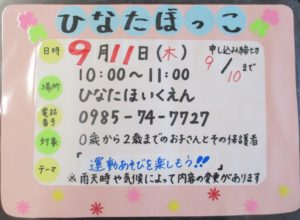 ひなたぼっこ
日時 9月11日(木) 申し込み締切
10:00〜11:00 9/10まで
場所 ひなたほいくえん
電話番号 0985-74-7727
対象 0歳から2歳までのお子さんとその保護者
テーマ 『運動あそびを楽しもう!!』
※雨天時や気候によって内容の変更があります